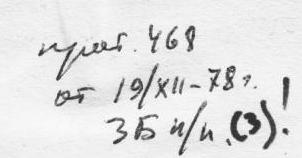 прот. 468
от 19/XII-78г.
3Б п/п. (3)!